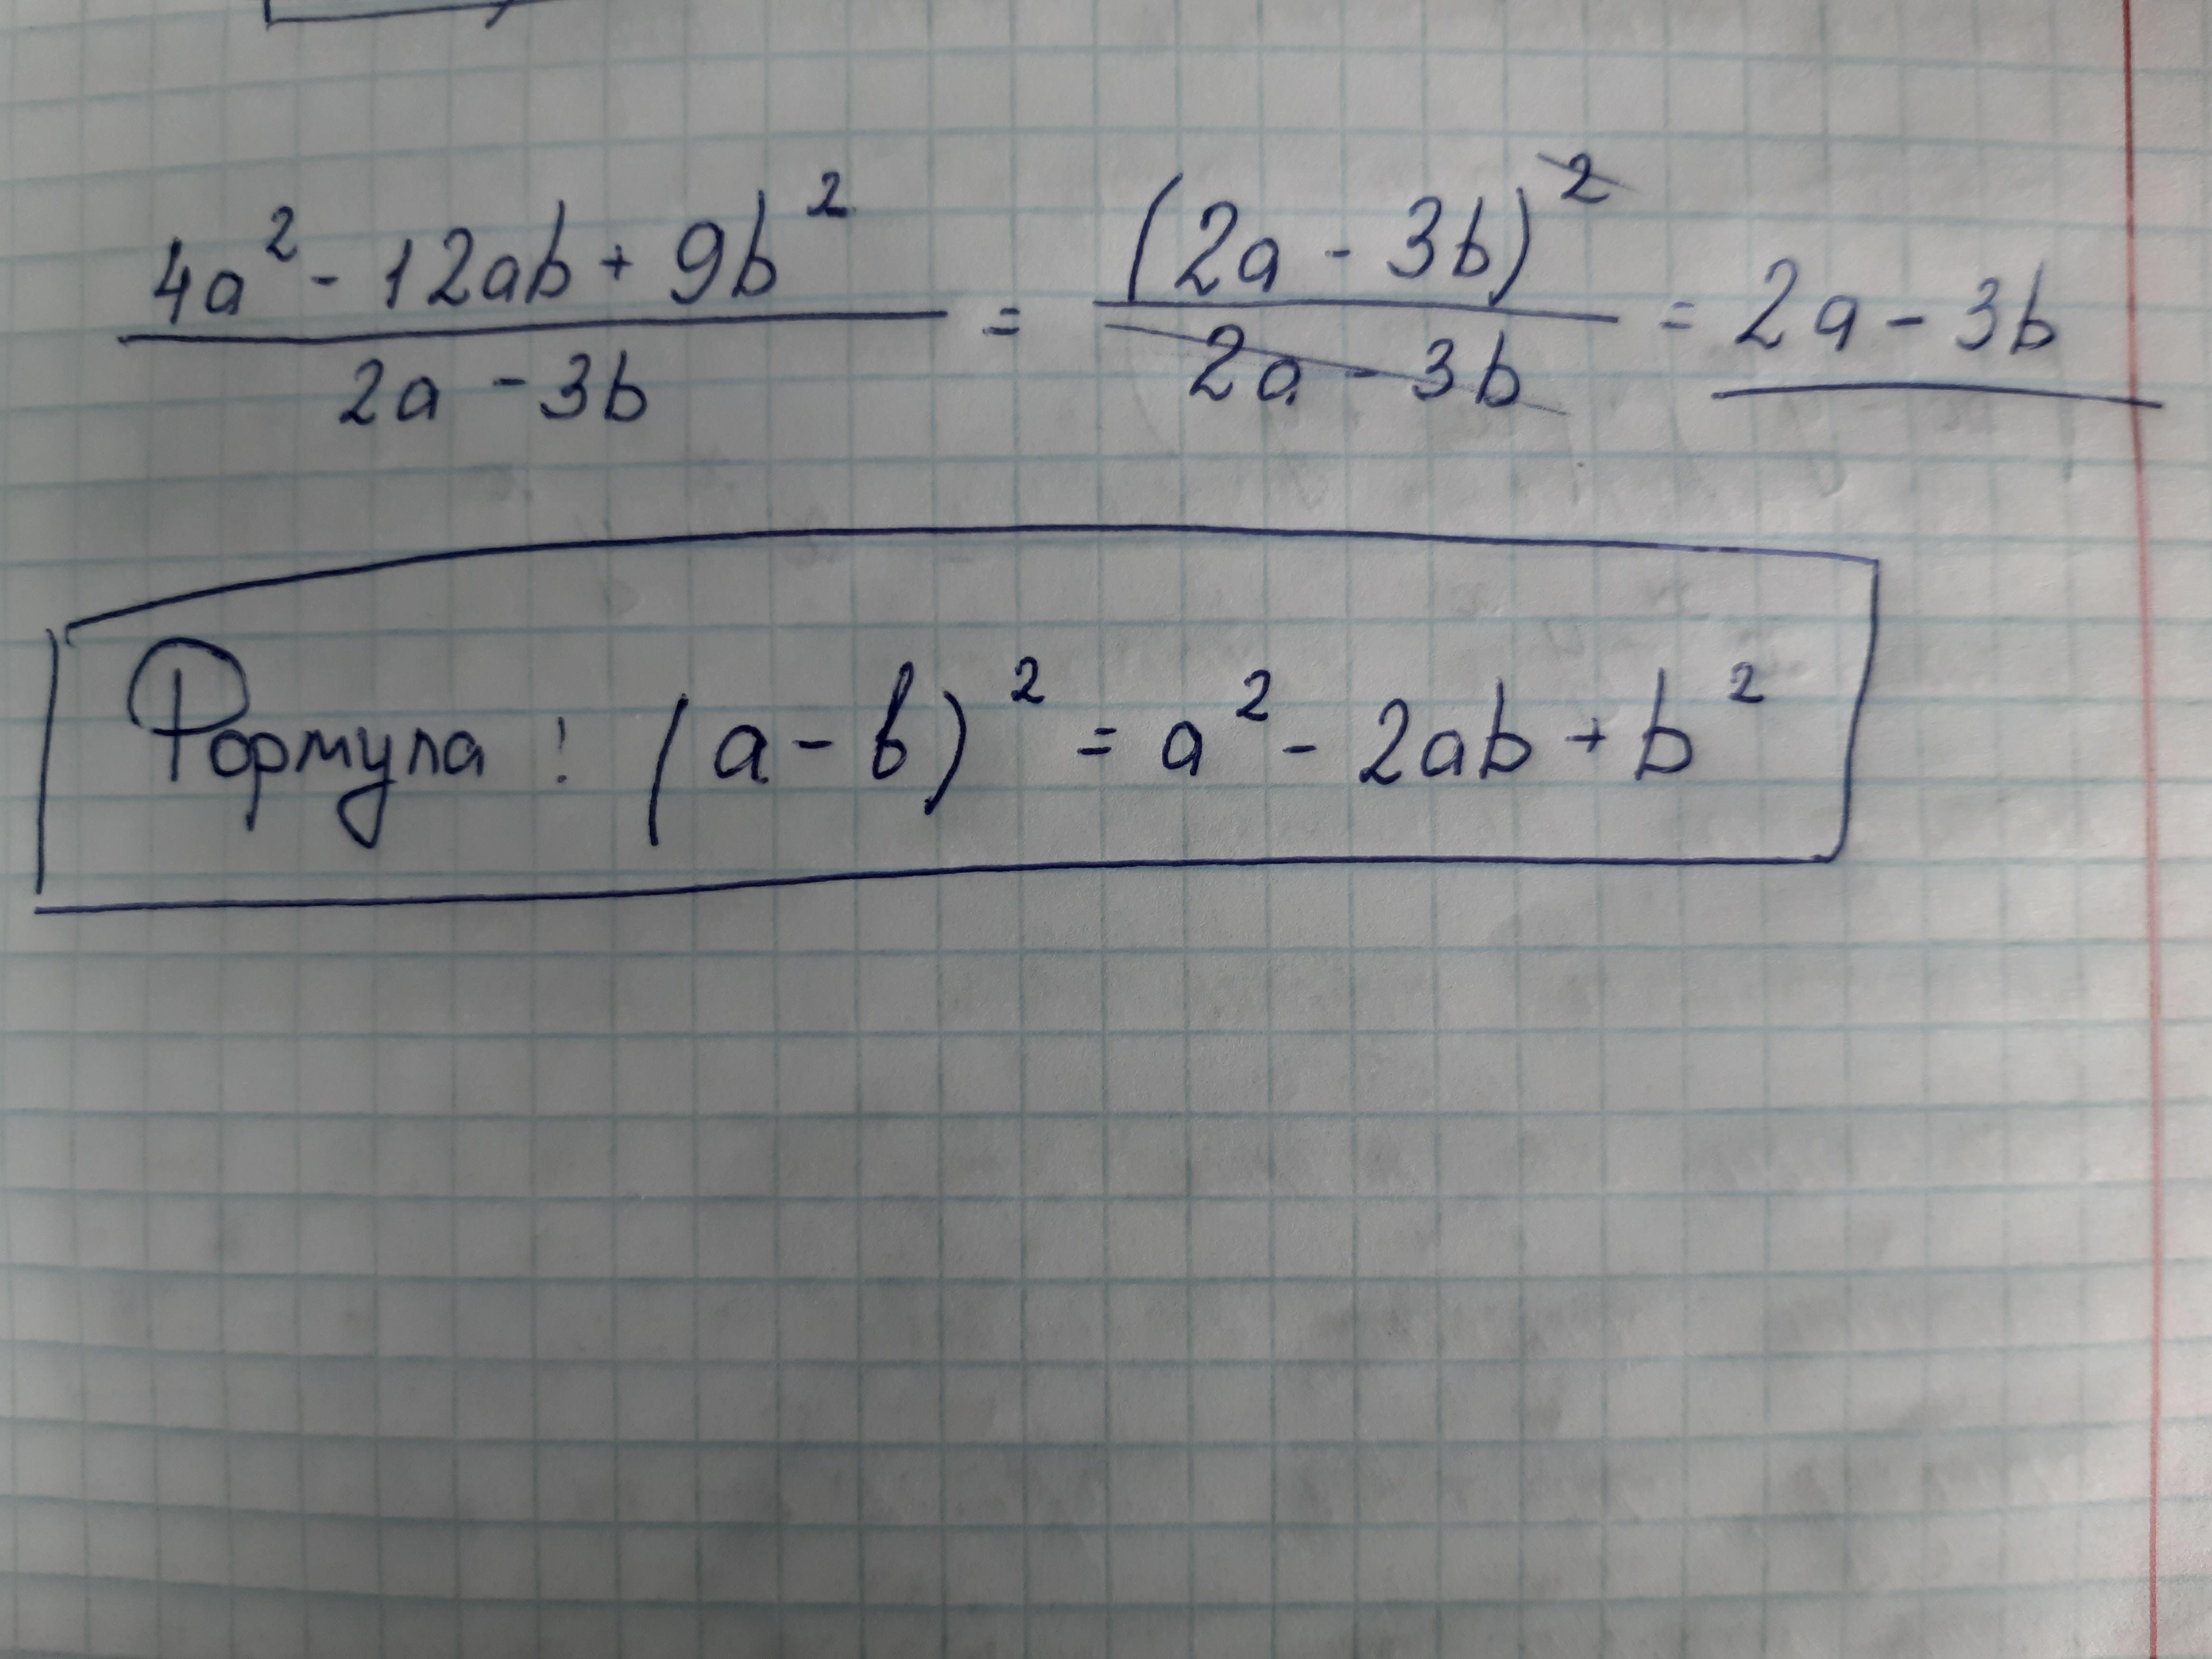 4a² - 12ab + 9b² / 2a - 3b = (2a - 3b)² / 2a - 3b = 2a - 3b
Формула: (a - b)² = a² - 2ab + b²